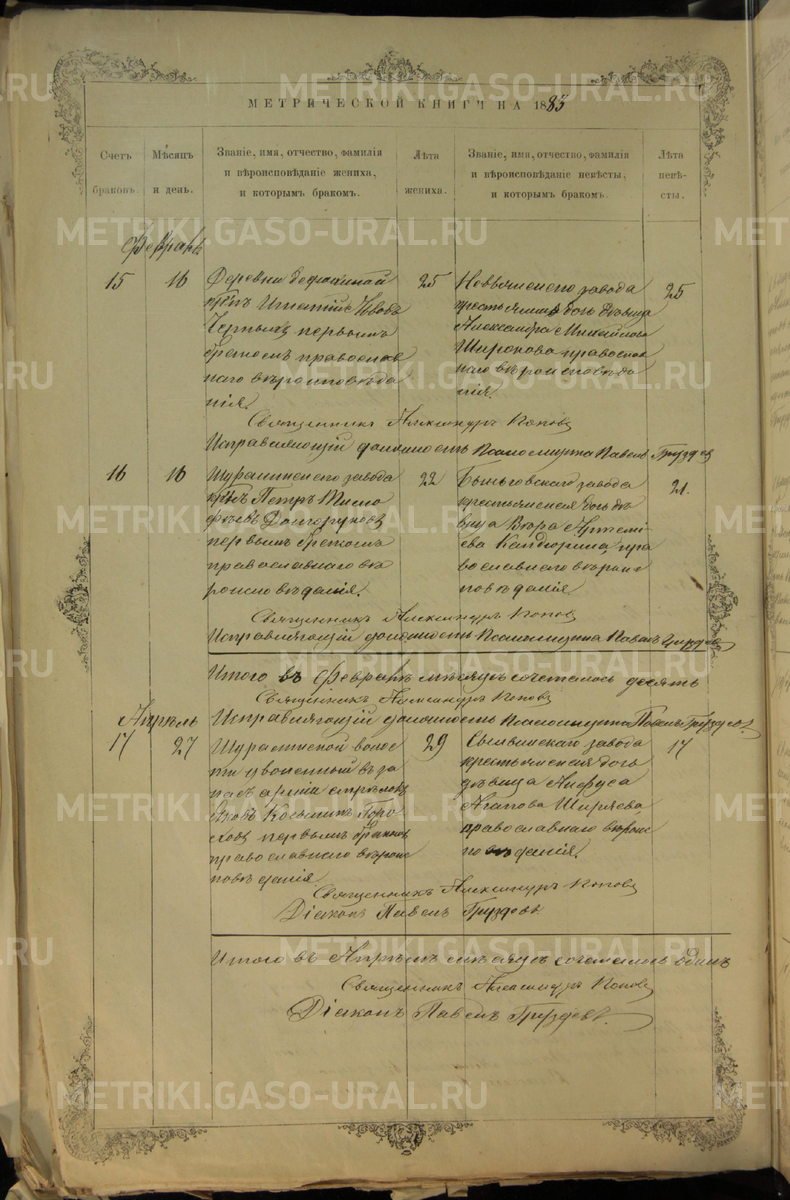 МЕТРИЧЕСКОЙ КНИГИ НА 1883
Счетъ браковъ.
Мѣсяцъ и день.
Званіе, имя, отчество, фамилія
и вѣроисповѣданіе жениха,
и которымъ бракомъ.
Лѣта
жениха.
Званіе, имя, отчество, фамилія
и вѣроисповѣданіе невѣсты,
и которымъ бракомъ.
Лѣта
невѣ-
сты.
Февраль
15
16
Деревни
Игнатій
первымъ
бракомъ православ
наго вѣроисповѣда
нія.
25
завода
дочь дѣвица
Александра Михайлова
Широкова православ
наго вѣроисповѣда
нія.
25
Священникъ Александръ Поповъ
Исправляющій должность Псаломщика Павелъ Груздевъ
16
16
Шуралинскаго завода
Петръ Тимо
феевъ Долгоруковъ
первымъ бракомъ
православнаго вѣ
роисповѣданія.
22
Быньговскаго завода
крестьянская дочь дѣ
вица Вѣра Артемі
ева пра
вославнаго вѣроис
повѣданія
21.
Священникъ Александръ Поповъ
Исправляющій должность Псаломщика Павелъ Груздевъ
Итого въ Февралѣ мѣсяцѣ сочеталось десять
Священникъ Александръ Поповъ
Исправляющій должность Псаломщика Павелъ Груздевъ.
Апрѣль
17
27
Шуралинской волос
ти уволенный въ за
пасъ арміи стрѣлокъ
Яковъ Косьминъ Горо
ховъ первымъ бракомъ
православнаго вѣроис
повѣданія
29
завода
крестьянская дочь
дѣвица Анфуса
Агапова Ширяева,
православнаго вѣроис
повѣданія.
17
Священникъ Александръ Поповъ
Діаконъ Павелъ Груздевъ
Итого въ Апрѣлѣ мѣсяцѣ сочеталось одинъ
Священникъ Александръ Поповъ
Діаконъ Павелъ Груздевъ.
METRIKI.GASO-URAL.RU